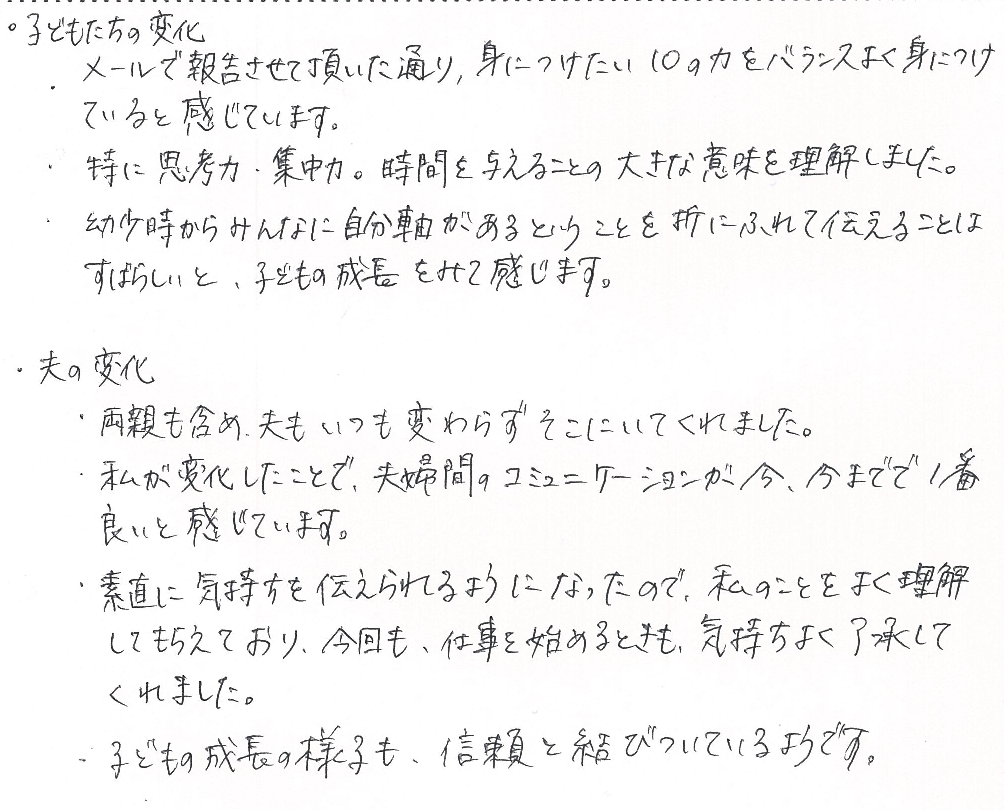 ・子どもたちの変化
・メールで報告させて頂いた通り, 身につけたい10の力をバランスよく身につけ
ていると感じています。
・特に思考力・集中力。時間を与えることの大きな意味を理解しました。
・幼少時からみんなに自分軸があるということを折にふれて伝えることは
すばらしいと、子どもの成長をみて感じます。
・夫の変化
・両親も含め、夫もいつも変わらずそこにいてくれました。
・私が変化したことで、夫婦間のコミュニケーションが今、今までで1番
良いと感じています。
・素直に気持ちを伝えられるようになったので、私のことをよく理解
してもらえており、今回も、仕事を始めるときも、気持ちよく了承して
くれました。
・子どもの成長の様子も、信頼と結びついているようです。